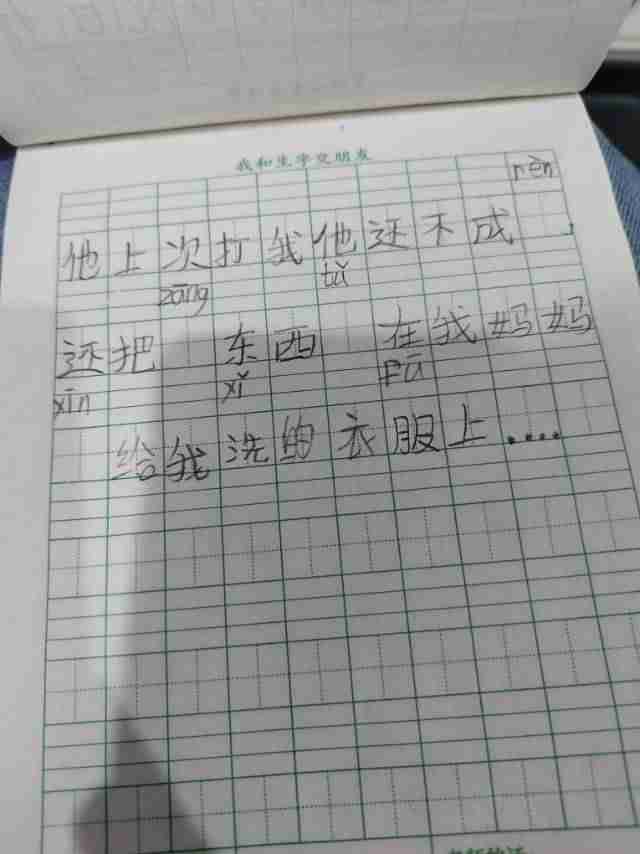 我和生字交朋友
rèn
他上次打我他还不成,
zāng tǔ
还把 东西 在我妈妈
xīn xǐ fū
给我洗的衣服上....